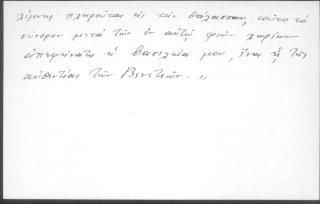 λίμνης πληροῦται εἰς τὴν θάλασσαν, τοῦτο τὸ
σύνορον μεταξὺ τῶν ἐν αὐτῇ τριῶν χωρίων
ἀπεχρήνατο ἡ βασιλεία μου, ἵνα ᾖ τῆς
αὐθεντίας τῶν Βενετικῶν. "